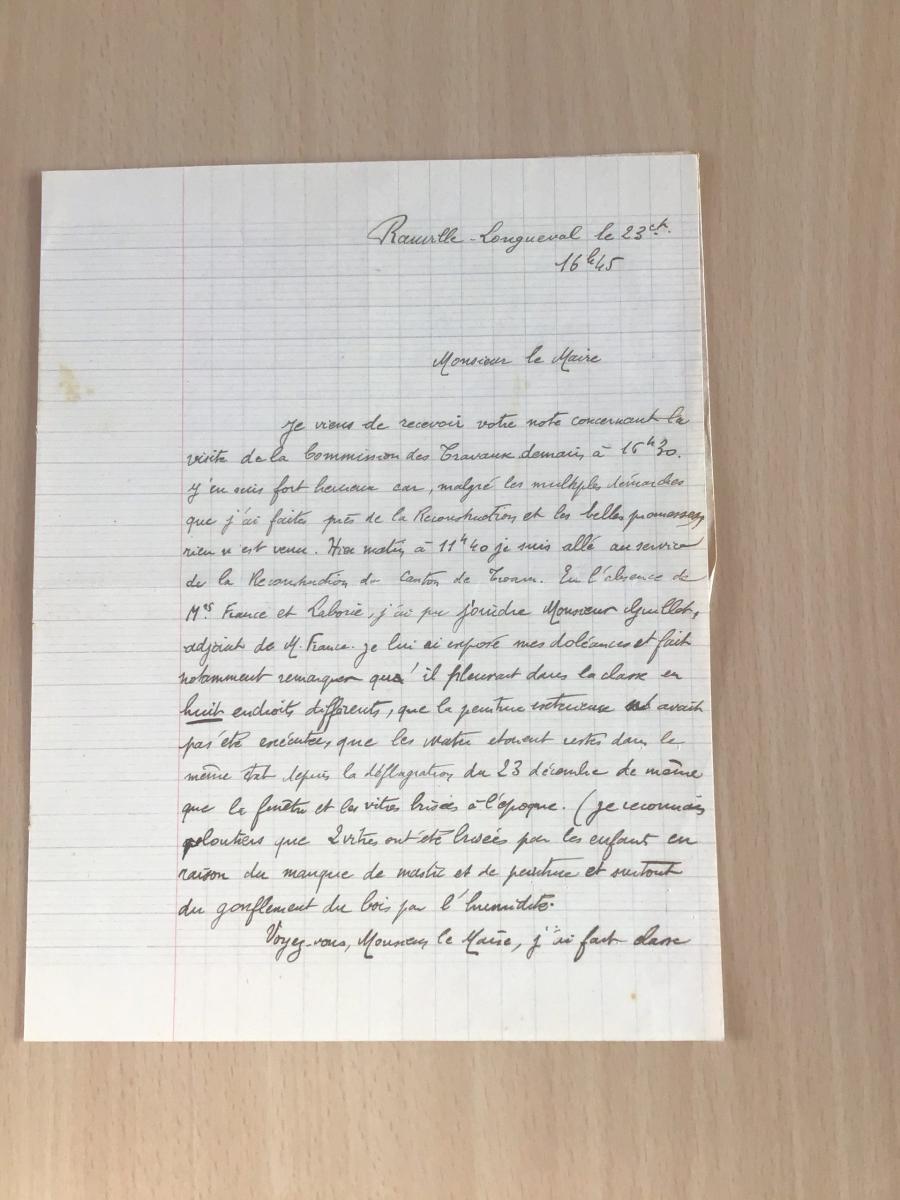 Ranville-Longueval le 23 ct.
16h45
Monsieur le Maire
Je viens de recevoir votre note concernant la
visite de la Commission des Travaux demain à 16h30.
J'en suis fort heureux car, malgré les multiples démarches
que j'ai faites près de la Reconstruction et les belles promesses,
rien n'est venu. Hier matin à 11h40 je suis allé au service
de la Reconstruction du Canton de Troarn. En l'absence de
Mrs France et Laborie, j'ai pu joindre Monsieur Guillot,
adjoint de M. France. Je lui ai exposé mes doléances et fait
notamment remarquer qu'il pleuvait dans la classe en
huit endroits différents, que la peinture extérieure avait
pas été exécutée, que les étaient restés dans le
même état depuis la déflagration du 23 décembre de même
que la fenêtre et les vitres brisées à l'époque. (Je reconnais
volontiers que 2 vitres ont été brisées par les enfants en
raison du manque de mastic et de peinture et surtout
du gonflement du bois par l'humidité.
Voyez-vous, Monsieur le Maire, j'ai fait classe